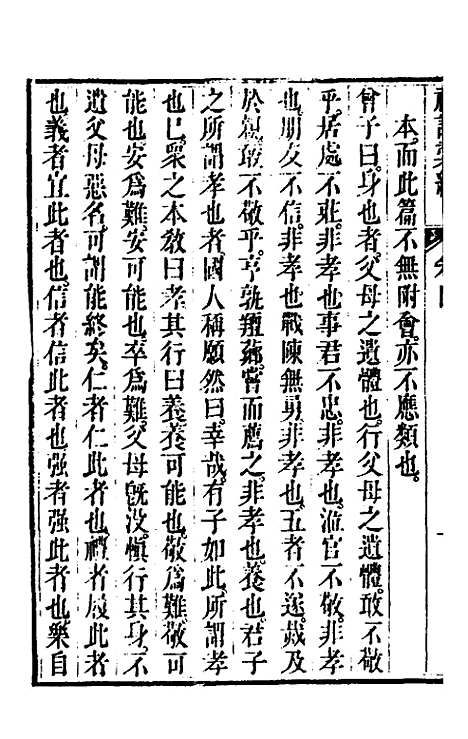 本而此篇不無附會亦不應類也
曾子曰身也者父母之遺體也行父母之遺體敢不敬
乎居處不莊非孝也事君不忠非孝也涖官不敬非孝
也朋友不信非孝也戰陳無勇非孝也五者不遂烖及
於親敢不敬乎亨孰羶薌嘗而薦之非孝也養也君子
之所謂孝也者國人稱願然曰幸哉有子如此所謂孝
也已衆之本敎曰孝其行曰養養可能也敬爲難敬可
能也安爲難安可能也卒爲難父母旣没愼行其身不
遺父母惡名可謂能終矣仁者仁此者也禮者履此者
也義者宜此者也信者信此者也强者强此者也樂自